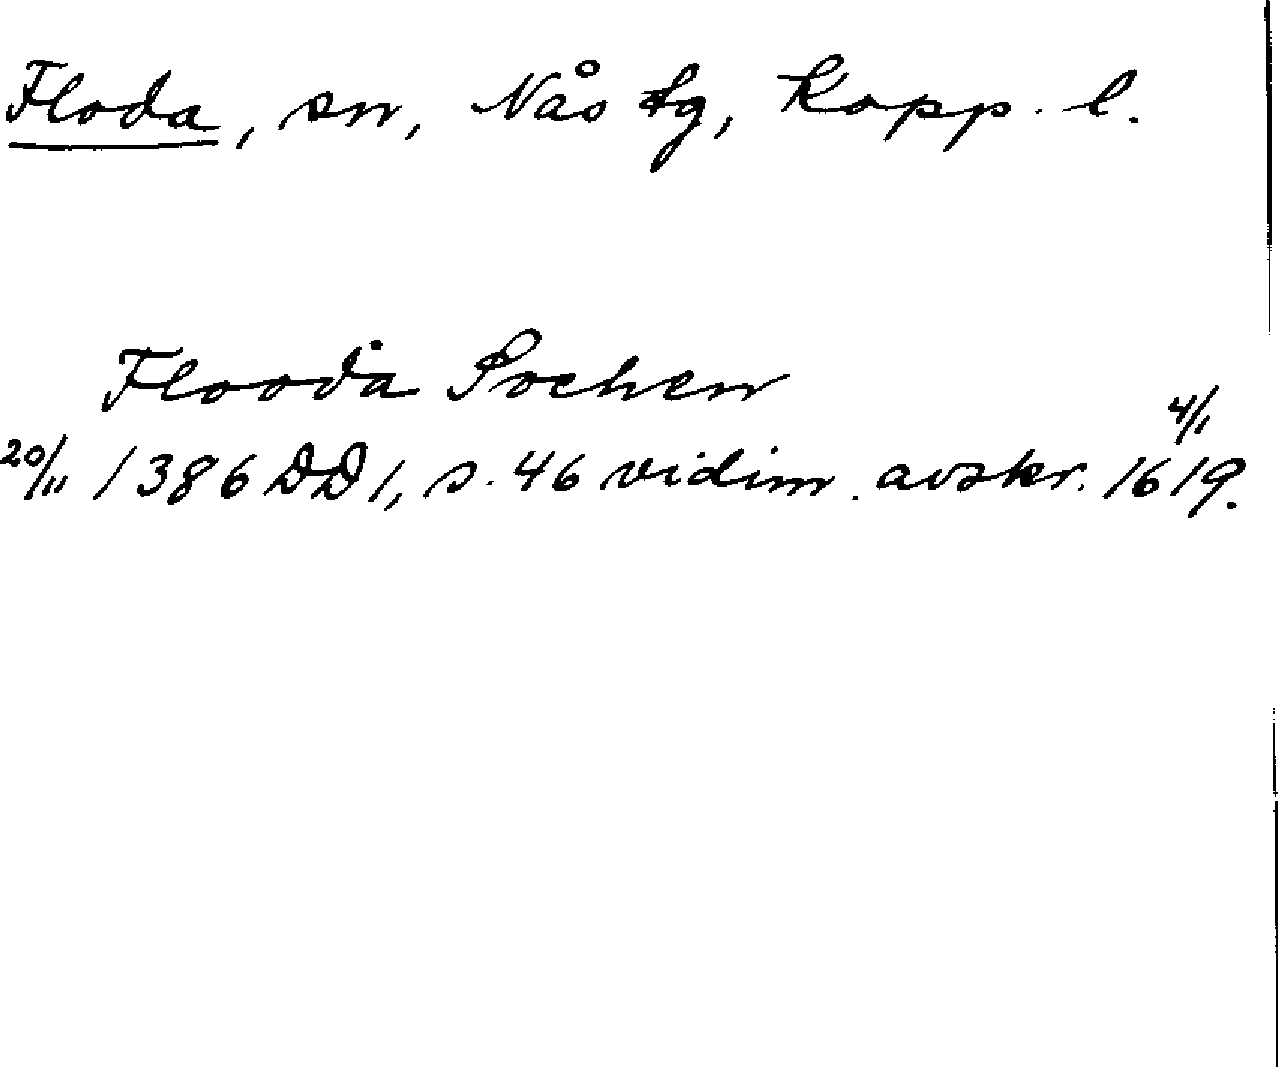 Floda, sn, Nås tg, Kopp. l.
Flooda Sochen
20/11 1386 DD1, s. 46 vidim. avskr. 4/1 1619.